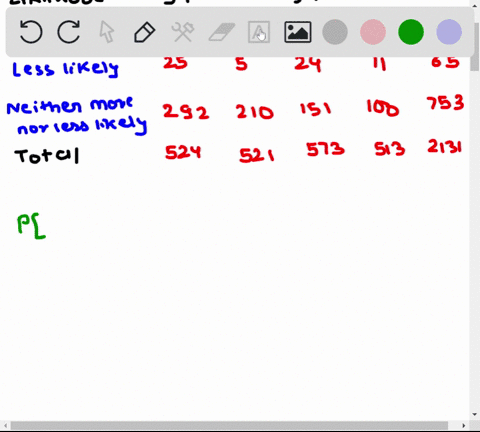 Less likely 25 5 24 11 65
Neither more nor less likely 292 210 151 100 753
Total 524 521 573 513 2131
P[